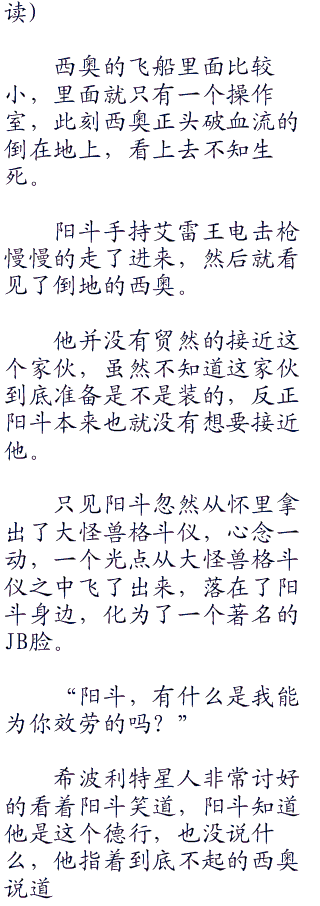 读）
西奥的飞船里面比较
小，里面就只有一个操作
室，此刻西奥正头破血流的
倒在地上，看上去不知生
死。
阳斗手持艾雷王电击枪
慢慢的走了进来，然后就看
见了倒地的西奥。
他并没有贸然的接近这
个家伙，虽然不知道这家伙
到底准备是不是装的，反正
阳斗本来也就没有想要接近
他。
只见阳斗忽然从怀里拿
出了大怪兽格斗仪，心念一
动，一个光点从大怪兽格斗
仪之中飞了出来，落在了阳
斗身边，化为了一个著名的
JB脸。
“阳斗，有什么是我能
为你效劳的吗？”
希波利特星人非常讨好
的看着阳斗笑道，阳斗知道
他是这个德行，也没说什
么，他指着到底不起的西奥
说道